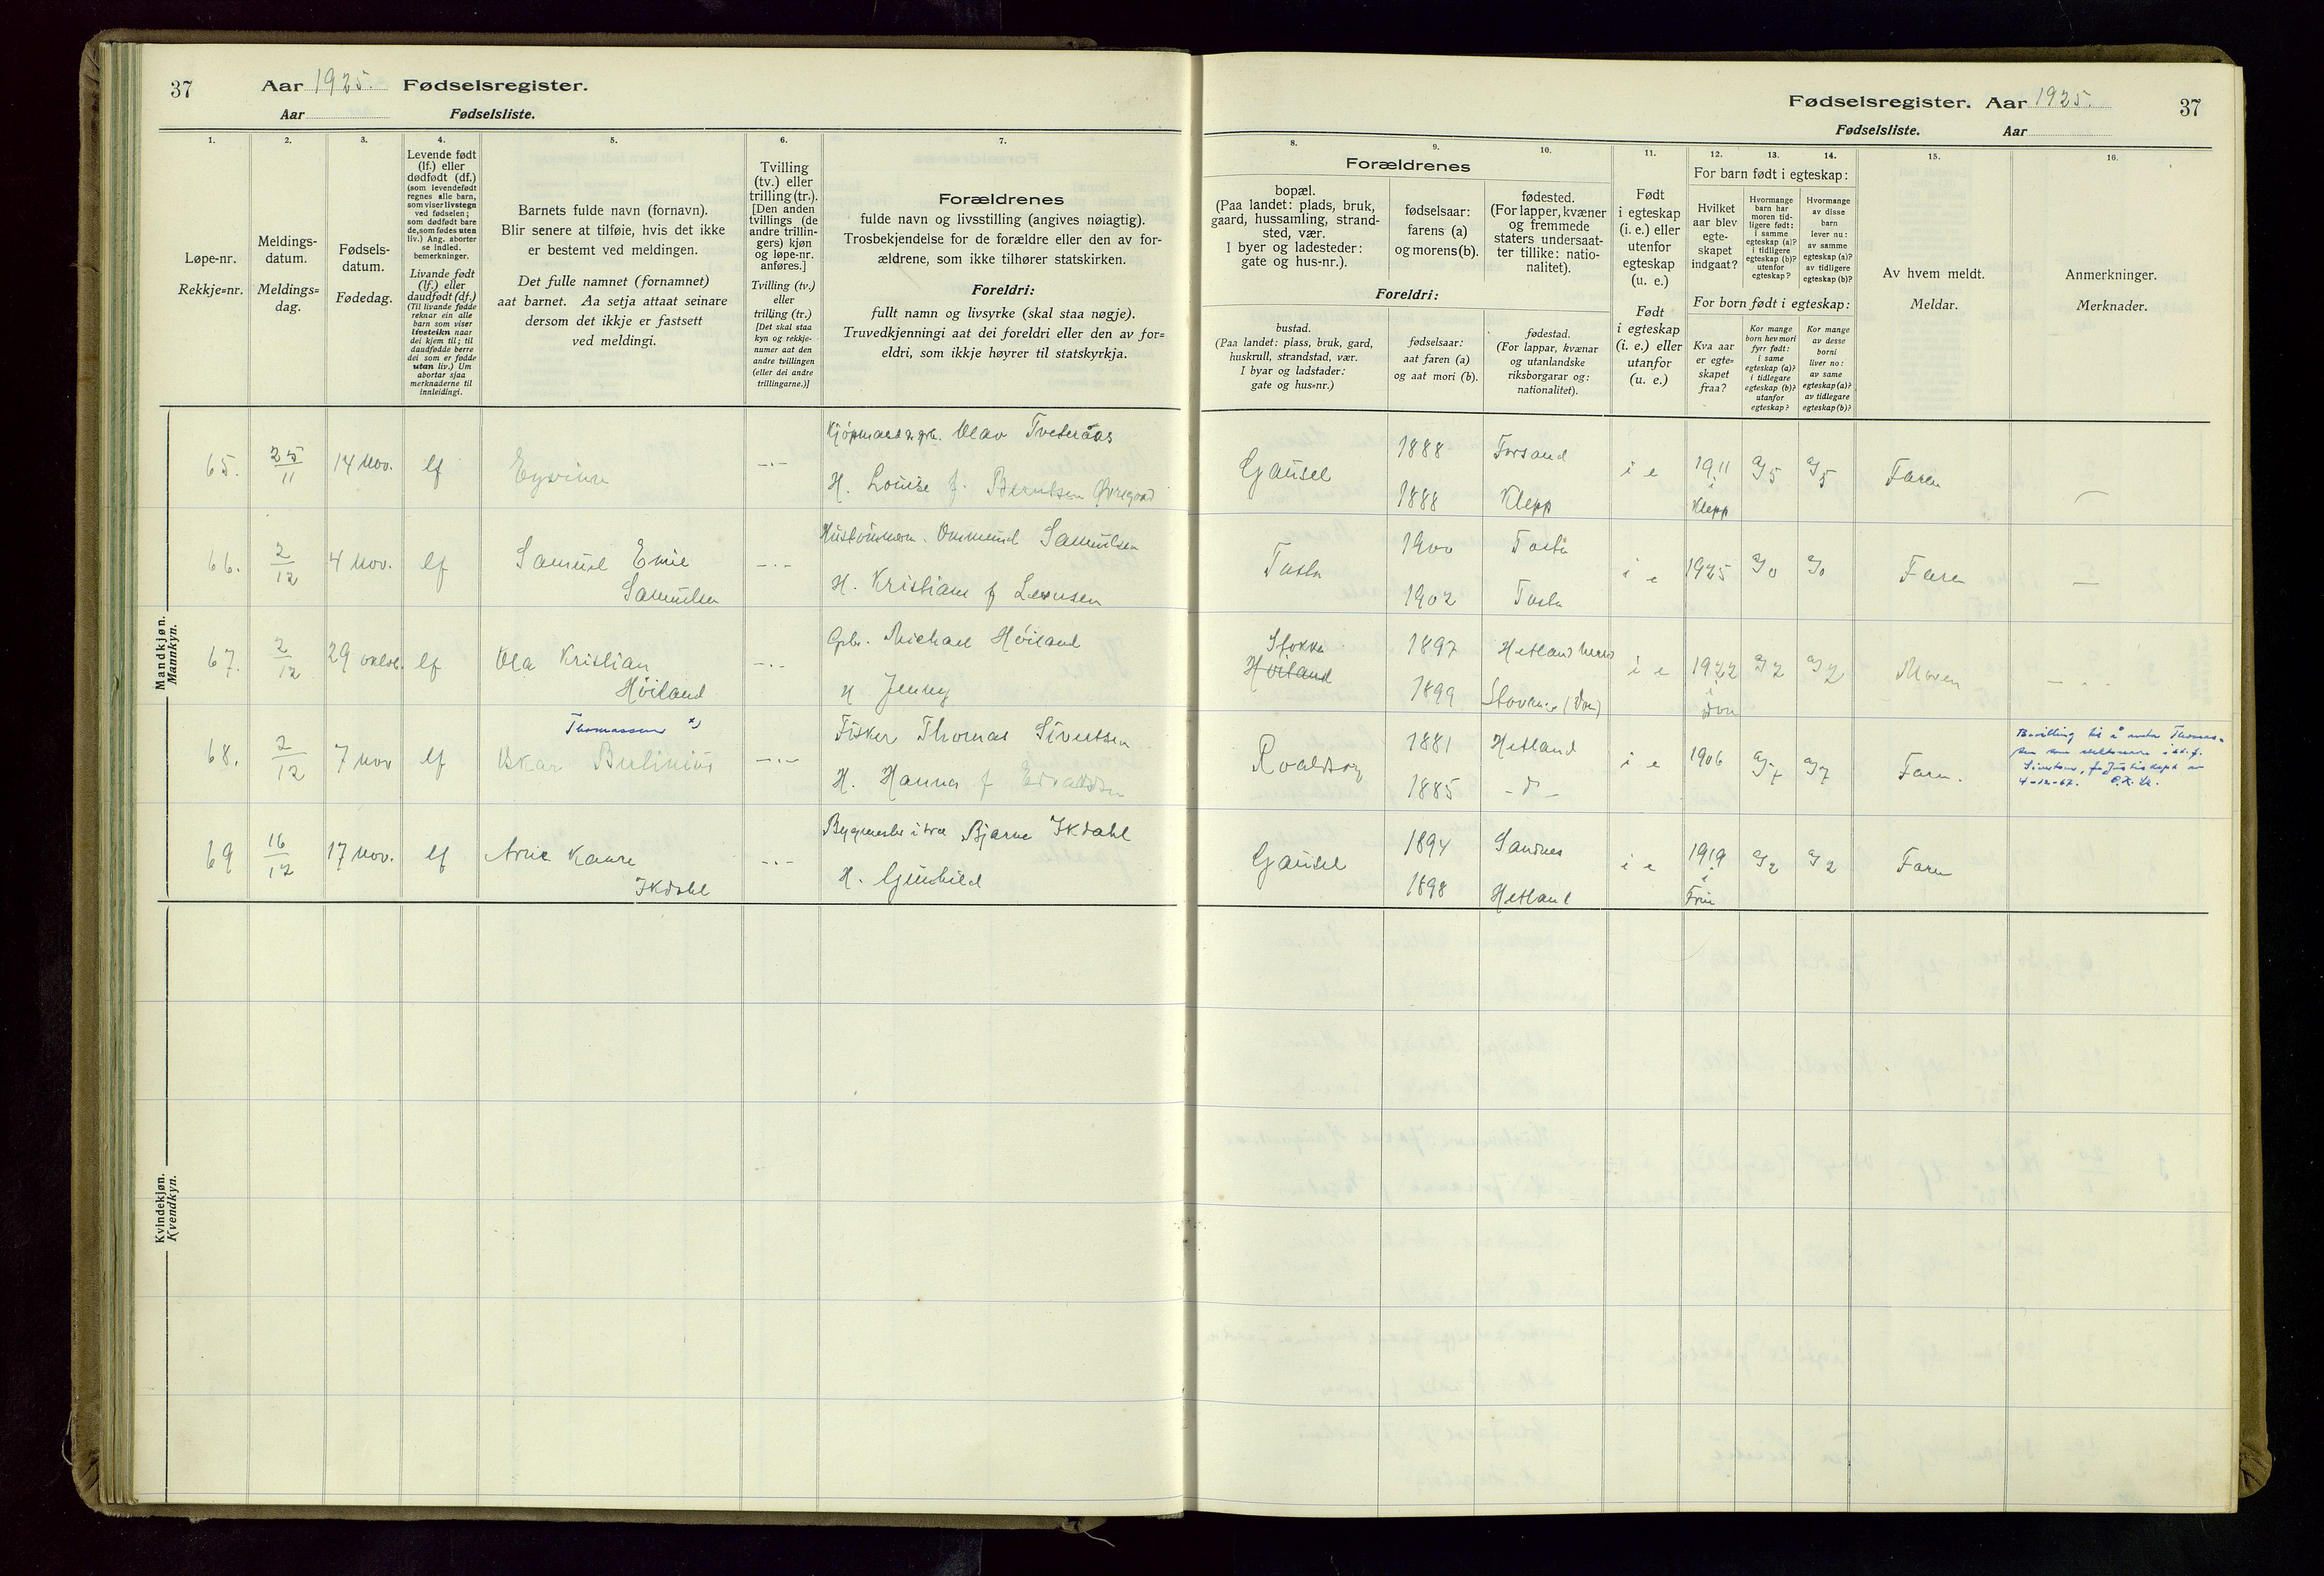 37
Aar 1925. Fødselsregister.
Aar Fødselsliste.
1.
2.
3.
4.
5.
6.
7.
Løpe-nr.
Rekkje=nr.
Meldings-
datum.
Meldings=
dag.
Fødsels-
datum.
Fødedag.
Levende født
(lf.) eller
dødfødt (df.)
(som levendefødt
regnes alle barn,
som viser livstegn
ved fødselen;
som dødfødt bare
de, som fødes uten
liv.) Ang. aborter
se indled.
bemerkninger.
Livande født
(lf.) eller
daudfødt (df.)
(Til livande fødde
reknar ein alle
barn som viser
livsteikn naar
dei kjem til; til
daudfødde berre
dei som er fødde
utan liv.) Um
abortar sjaa
merknaderne til
innleidingi.
Barnets fulde navn (fornavn).
Blir senere at tilføie, hvis det ikke
er bestemt ved meldingen.
Det fulle namnet (fornamnet)
aat barnet. Aa setja attaat seinare
dersom det ikkje er fastsett
ved meldingi.
Tvilling
(tv.) eller
trilling (tr.).
[Den anden
tvillings (de
andre trillin-
gers) kjøn
og løpe-nr.
anføres.]
Tvilling (tv.)
eller
trilling (tr.)
[Det skal staa
kyn og rekkje-
numer aat den
andre tvillingen
(eller dei andre
trillingarne.)]
Forældrenes
fulde navn og livsstilling (angives nøiagtig).
Trosbekjendelse for de forældre eller den av for-
ældrene, som ikke tilhører statskirken.
Foreldri:
fullt namn og livsyrke (skal staa nøgje).
Truvedkjenningi aat dei foreldri eller den av for=
eldri, som ikkje høyrer til statskyrkja.
Mandkjøn.
Mannkyn.
65. 25/11 14 nov. lf —.— Kjøpmand Olav Tveteraas
H. Louise f. Berntsen
66. 2/12 4 nov. lf Samuel Emil —.— Ommund Samuelsen
Samuelsen H. Kristiane f
67. 2/12 29 lf Ola Kristian —.— Gbr. Michael Høiland
Høiland H Jenny
Thomassen x)
68. 2/12 7 nov lf Oskar —.— Fisker Thomas Sivertsen
H. Hanna f
69 16/12 17 nov. lf Arne Kaare —.— Bygmester i Bjarne Ikdahl
Ikdahl H. Gunhild
Kvindekjøn.
Kvendkyn.
Fødselsregister. Aar 1925. 37
Fødselsliste. Aar
8.
9.
10.
11.
12.
13.
14.
15.
16.
Forældrenes
bopæl.
(Paa landet: plads, bruk,
gaard, hussamling, strand-
sted, vær.
I byer og ladesteder:
gate og hus-nr.).
fødselsaar:
farens (a)
og morens (b).
fødested.
(For lapper, kvæner
og fremmede
staters undersaat-
ter tillike: natio-
nalitet).
Foreldri:
bustad.
(Paa landet: plass, bruk, gard,
huskrull, strandstad, vær.
I byar og ladstader:
gate og hus=nr.)
fødselsaar:
aat faren (a)
og aat mori (b).
fødestad.
(For lappar, kvænar
og utanlandske
riksborgarar og:
nationalitet).
Født
i egteskap
(i. e.) eller
utenfor
egteskap
(u. e.)
Født
i egteskap
(i. e.) eller
utanfor
(u. e.)
For barn født i egteskap:
Hvilket
aar blev
egte-
skapet
indgaat?
Hvormange
barn har
moren tid-
ligere født:
i samme
egteskap (a)?
i tidligere
egteskap (b)?
utenfor
egteskap?
Hvormange
av disse
barn
lever nu:
av samme
egteskap (a)?
av tidligere
egteskap (b)?
For born født i egteskap:
Kva aar
er egte=
skapet
fraa?
Kor mange
born hev mori
fyrr født:
i same
egteskap (a)?
i tidlegare
egteskap (b)?
utanfor
egteskap?
Kor mange
av desse
borni
liver no:
av same
egteskap (a)?
av tidlegare
egteskap (b)?
Av hvem meldt.
Meldar.
Anmerkninger.
Merknader.
Gausel 1888 Forsand i e 1911 i Klepp a/5 a/5 Faren —
1888 Klepp
Tasta 1900 Tasta i e 1925 a/0 a/0 Faren —
1902 Tasta
Stokka 1897 Hetland i e 1922 a/2 a/2 Moren
Høiland 1899
Roaldsøy 1881 Hetland i e 1906 a/7 a/7 Faren.
1885 - d -
Bevilling til å anta Thomas-
sen som slektsnavn i st. f.
Sivertsen,
4-12-67.
Gausel 1894 Sandnes i e 1919 i a/2 a/2 Faren
1898 Hetland